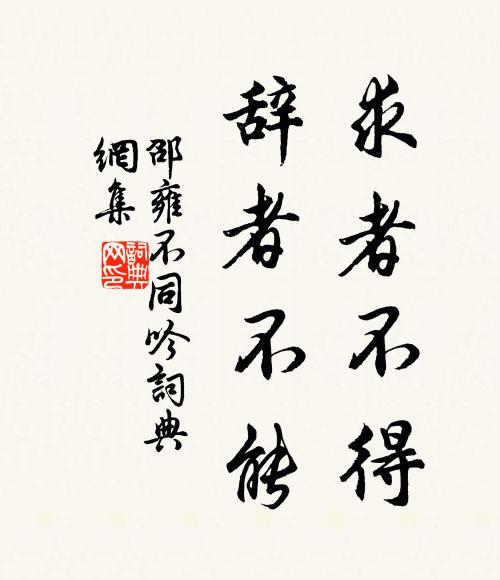 求者不得
辞者不能
邵雍不同吟詞典
網集
詞典
网印